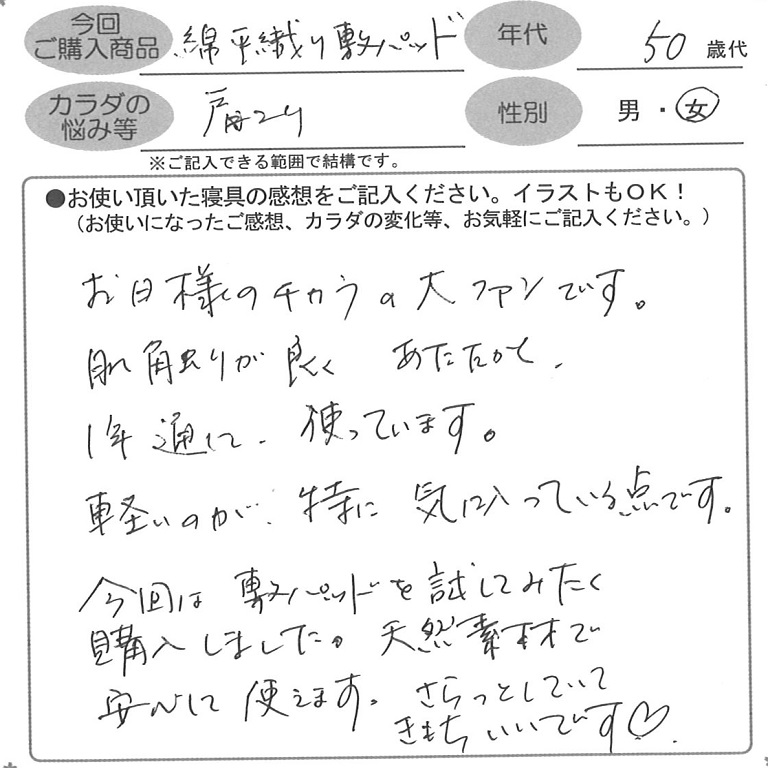 今回
ご購入商品 綿平織り敷パッド
年代 50 歳代
カラダの
悩み等 肩コリ
性別 男・女
※ご記入できる範囲で結構です。
●お使い頂いた寝具の感想をご記入ください。イラストもOK!
(お使いになったご感想、カラダの変化等、お気軽にご記入ください。)
お日様のチカラの大ファンです。
肌触りが良く あたたかで、
1年通して、使っています。
軽いのが、特に気に入っている点です。
今回は敷パッドを試してみたく
購入しました。天然素材で
安心して使えます。さらっとしていて
きもちいいです♡.